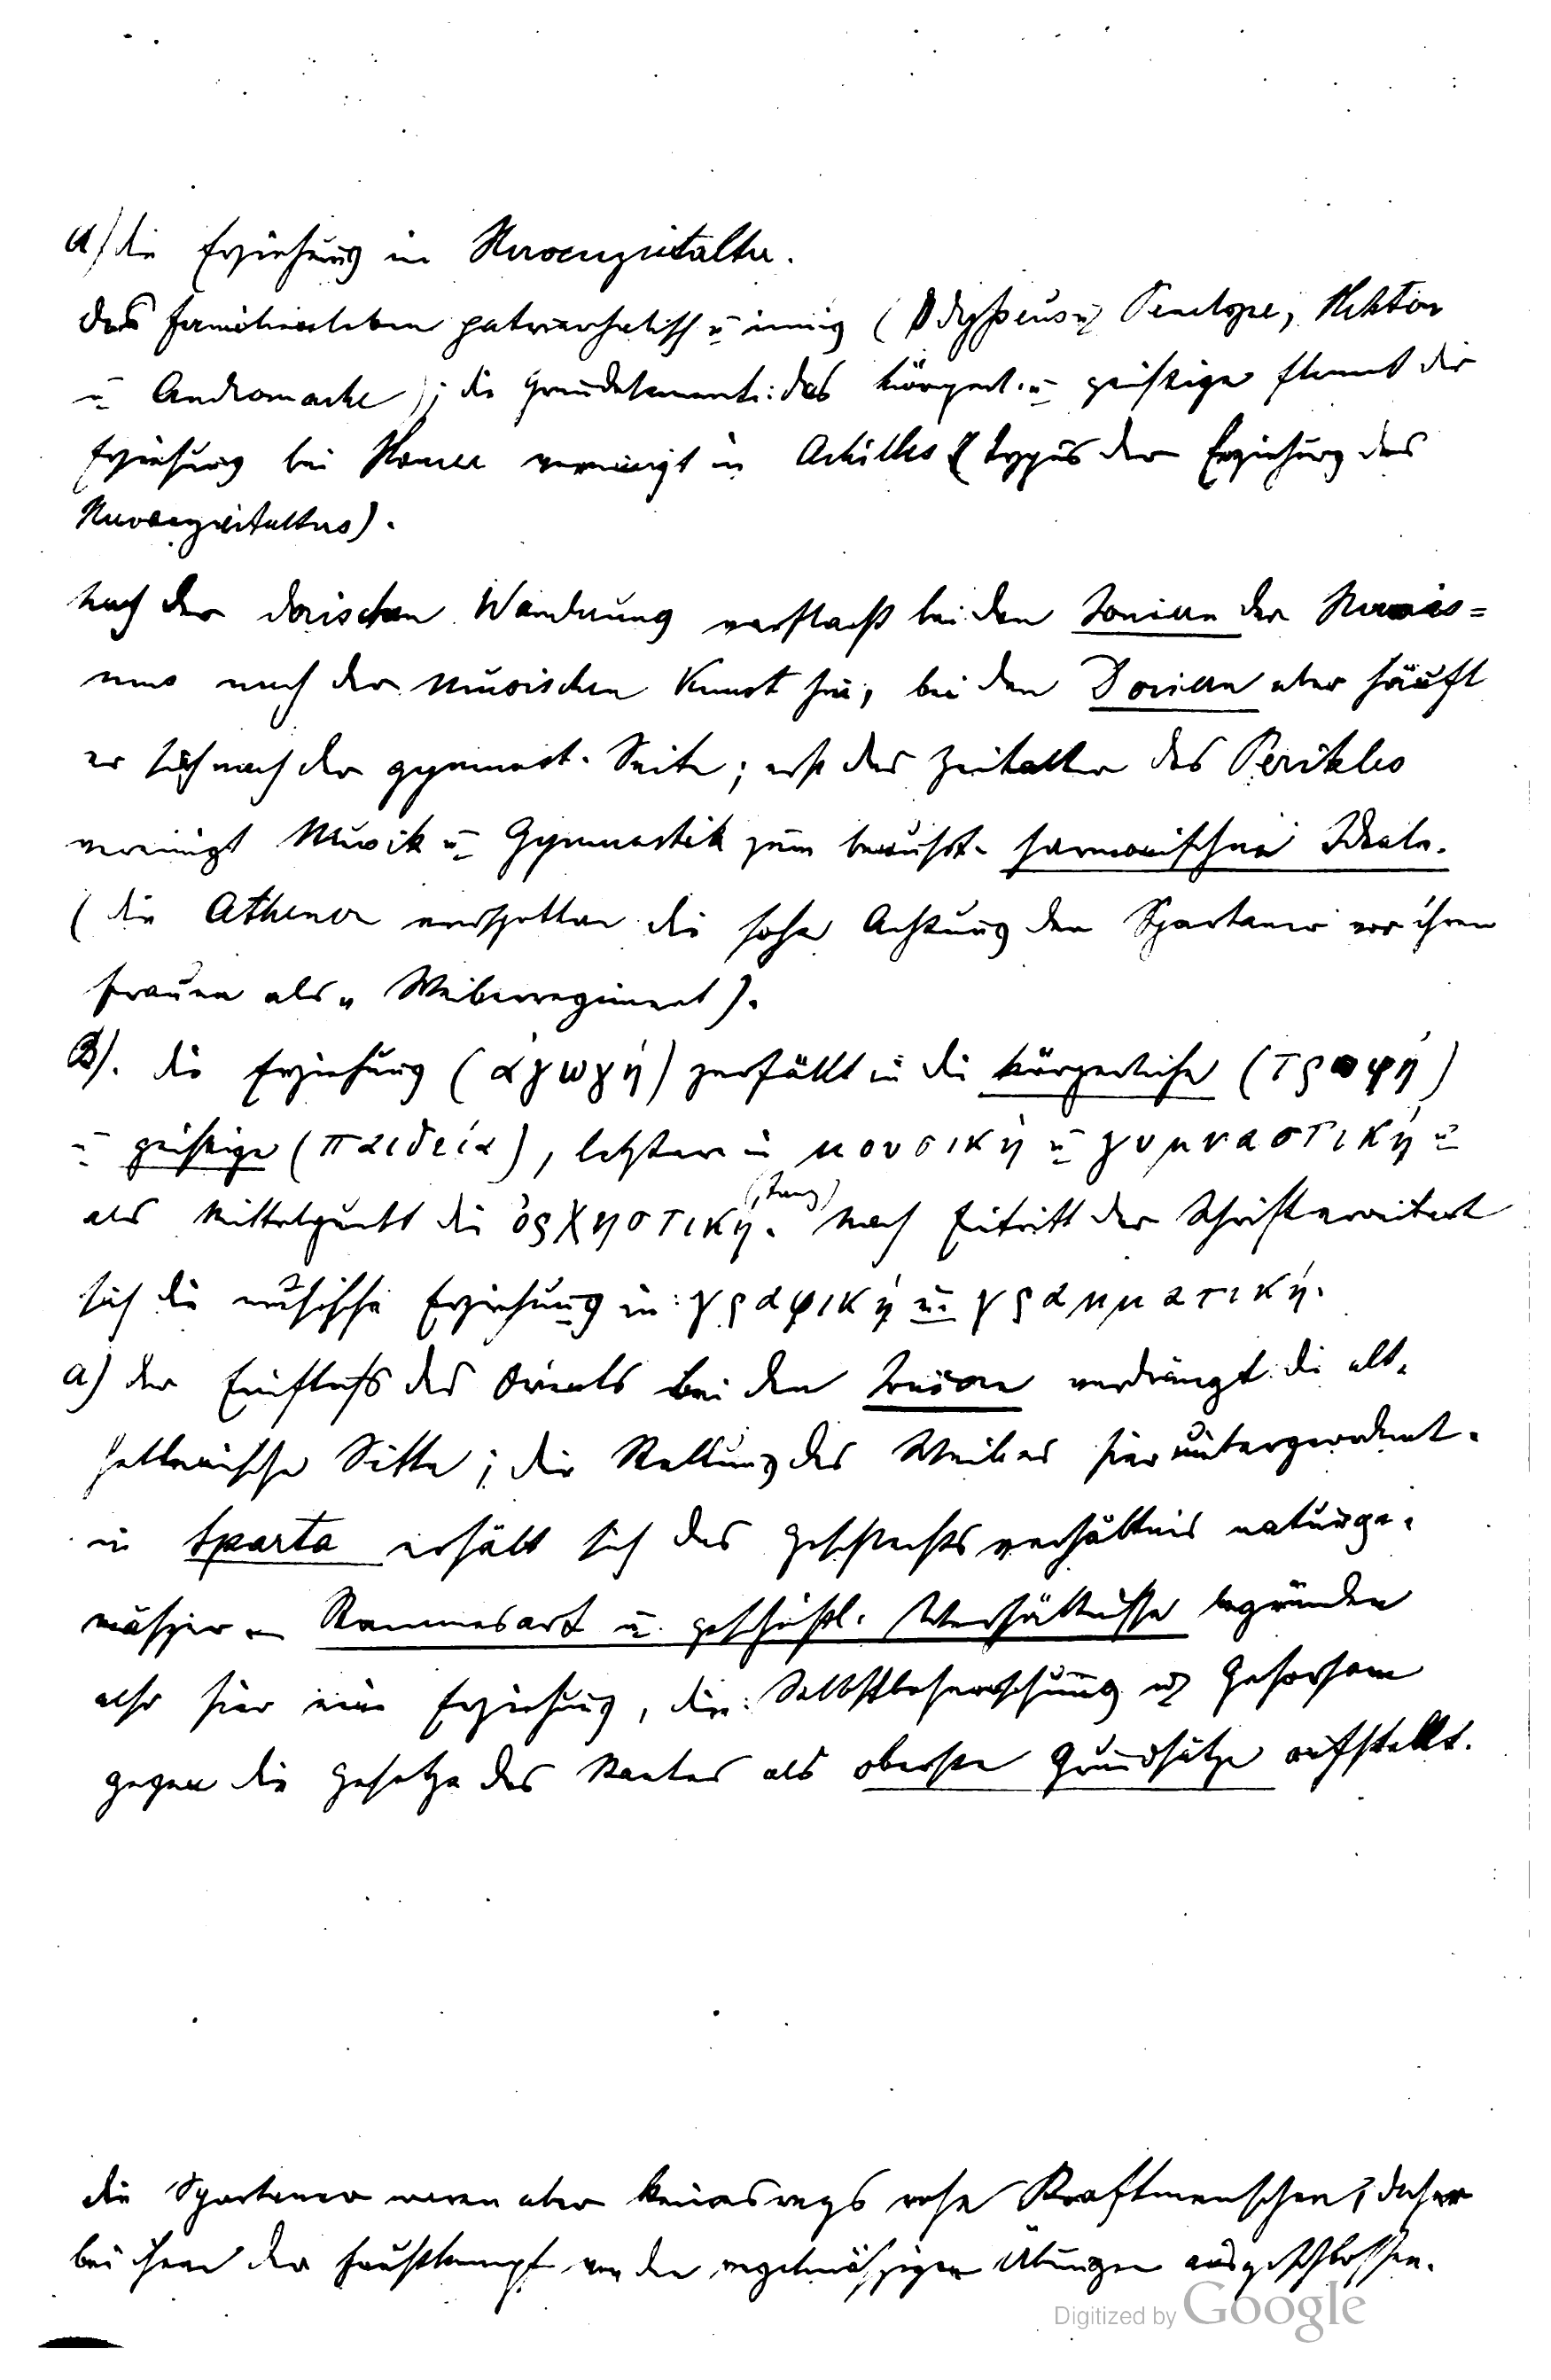 A) die Erziehung im Heroenzeitalter.
das Familienleben patriarchalisch u. innig (Odysseus u. Penelope, Hektor
u. Andromache); die Grundelemente: das körperl. u. geistige Element der
Erziehung bei Homer vereinigt in Achilles (Typus der Erziehung des
Heroenzeitalters).
Nach der dorischen Wanderung verflacht bei den Ioniern der Herois=
mus nach der musischen Kunst hin, bei den Doriern aber häuft
er sich nach der gymnast. Seite; erst das Zeitalter des Perikles
vereinigt Musik u. Gymnastik zum bewußt. harmonischen Ideale.
(die Athener verspotten die hohe Achtung der Spartaner vor ihren
Frauen als „Weiberregiment).
B). die Erziehung (ἀγωγή) zerfällt in die körperliche (τροφή)
u. geistige (παιδεία), letztere in μουσική u. γυμναστική u.
als Mittelpunkt die ὀρχηστική. (Tanz) Nach Eitritt der Schrift erweitert
sich die musische Erziehung in: γραφική u. γραμματική.
a) der Einfluß des Orients bei den Ioniern verdrängt die alt-
hellenische Sitte; die Stellung des Weibes hier untergeordnet.
in Sparta erhält sich das Geschlechtsverhältnis naturge-
mäßer – Stammesart u. geschichtl. Verhältnisse begründen
also hier eine Erziehung, die: Selbstbeherrschung u. Gehorsam
gegen die Gesetze des Staates als oberste Grundsätze aufstellt.
die Spartaner waren aber keineswegs rohe Kraftmenschen, daher
bei ihnen der Faustkampf von den regelmäßigen Übungen ausgeschlossen.
Digitized by Google